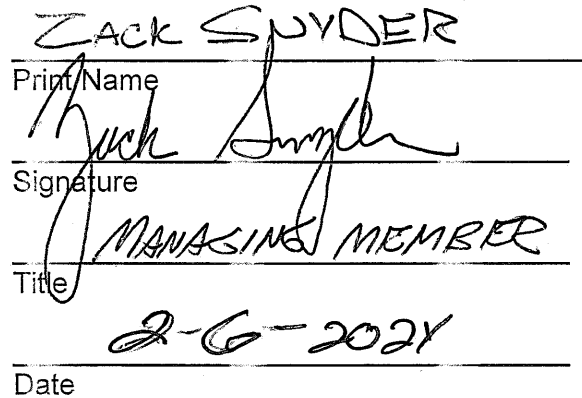 ZACK SNYDER
Print Name
Zack Snyder
Signature
MANAGING MEMBER
Title
2-6-2024
Date